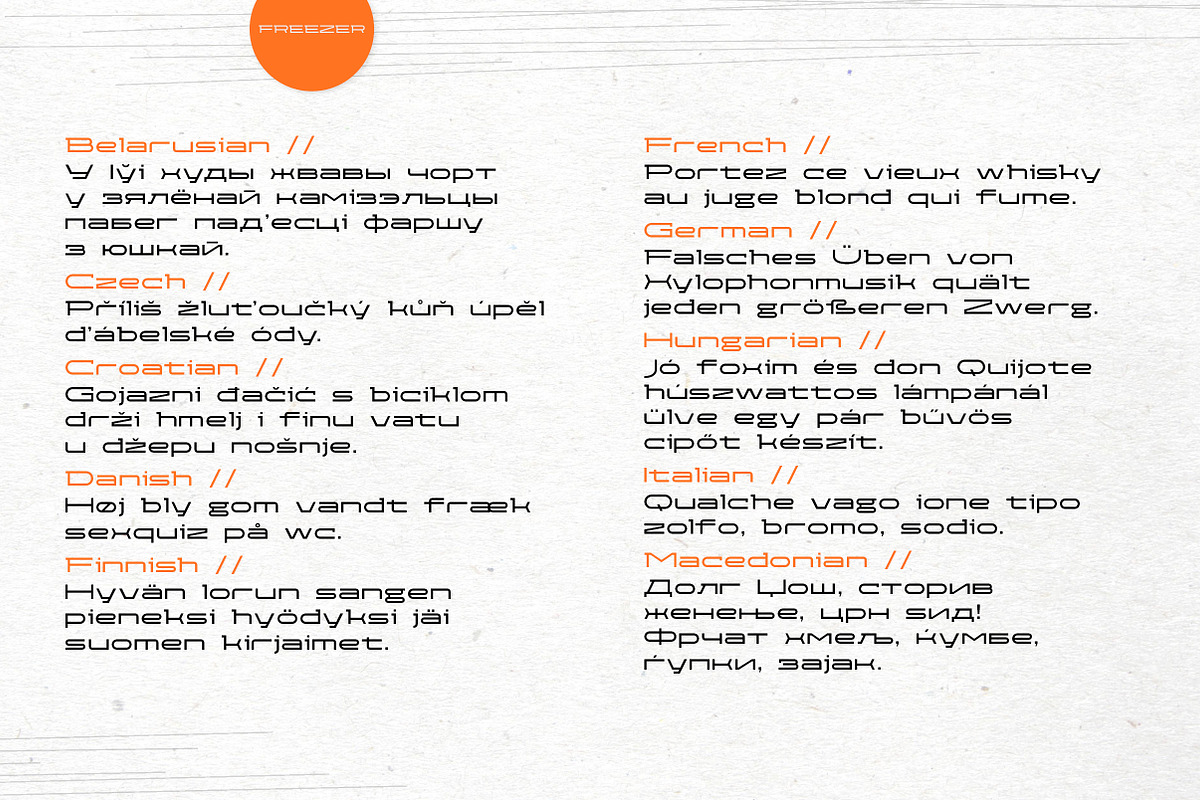 FREEZER
Belarusian //
У Іўі худы жвавы чорт
у зялёнай камізэльцы
пабег пад'есці фаршу
з юшкай.
Czech //
Příliš žluťoučký kůň úpěl
ďábelské ódy.
Croatian //
Gojazni đačić s biciklom
drži hmelj i finu vatu
u džepu nošnje.
Danish //
Høj bly gom vandt fræk
sexquiz på wc.
Finnish //
Hyvän lorun sangen
pieneksi hyödyksi jäi
suomen kirjaimet.
French //
Portez ce vieux whisky
au juge blond qui fume.
German //
Falsches Üben von
Xylophonmusik quält
jeden größeren Zwerg.
Hungarian //
Jó foxim és don Quijote
húszwattos lámpánál
ülve egy pár bűvös
cipőt készít.
Italian //
Qualche vago ione tipo
zolfo, bromo, sodio.
Macedonian //
Долг Џош, сторив
женење, црн ѕид!
Фрчат хмељ, ќумбе,
ѓупки, зајак.